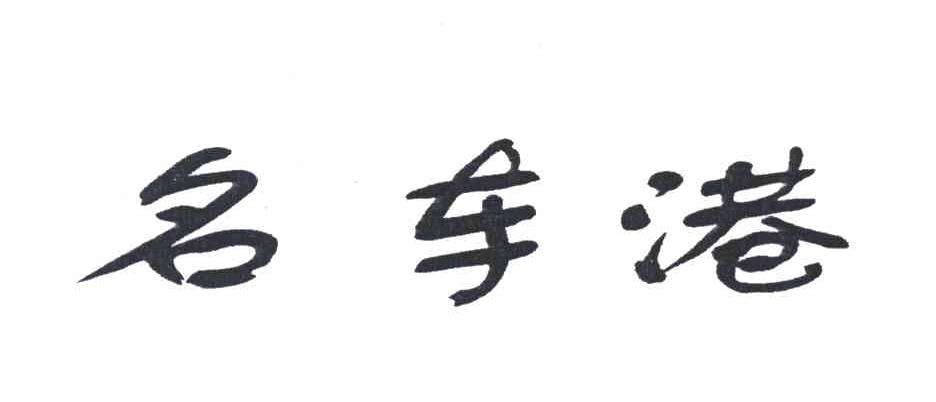 名车港